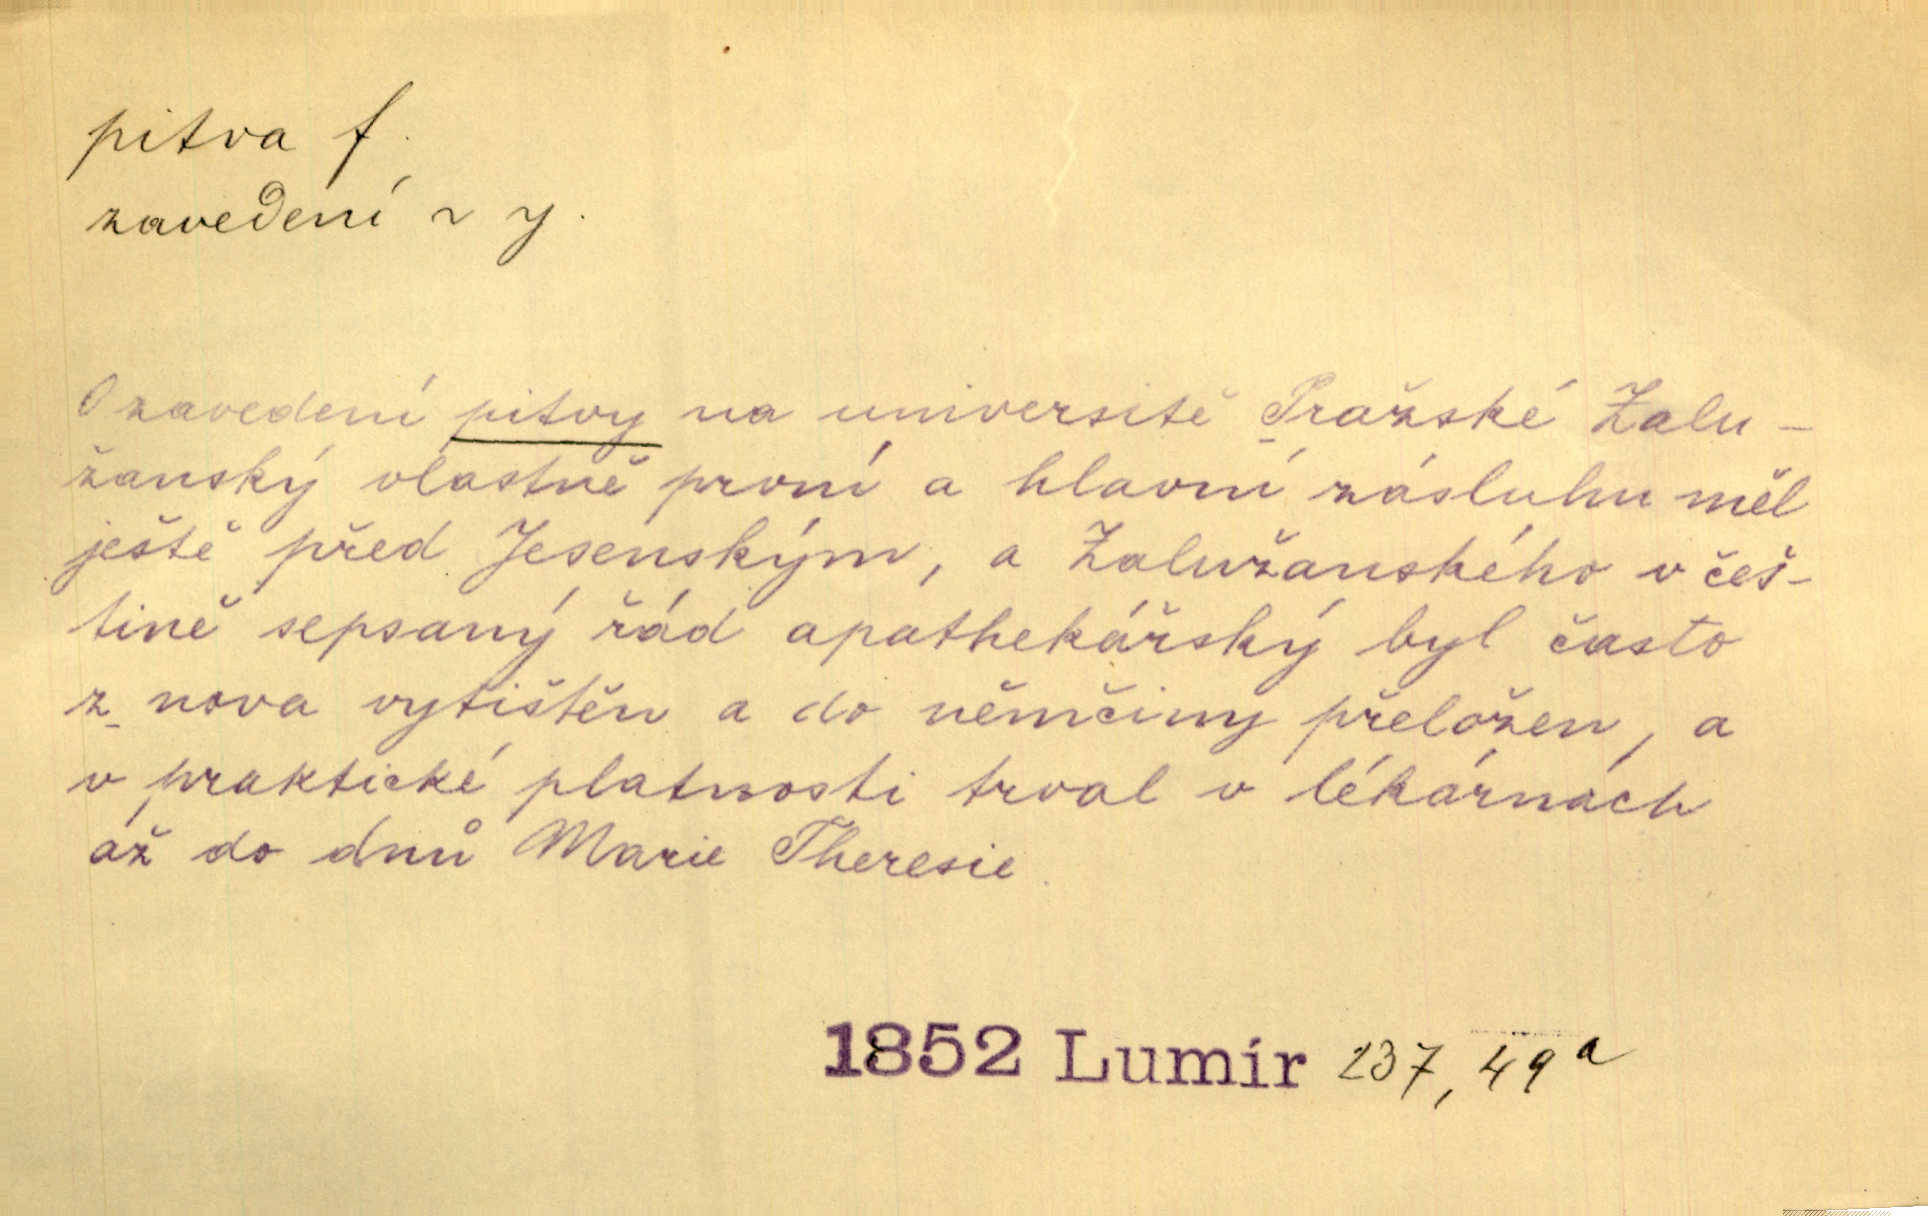 pitva f.
zavedení ~ y.
O zavedení pitvy na universitě Pražské Zalu-
žanský vlastně první a hlavní zásluhu měl
ještě před Jesenským, a Zalužanského v češ-
tině sepsaný řád apathekářský byl často
z nova vytištěn a do němčiny přeložen, a
v praktické platnosti trval v lékárnách
až do dnů Marie Theresie
1852 Lumír 237, 49 a